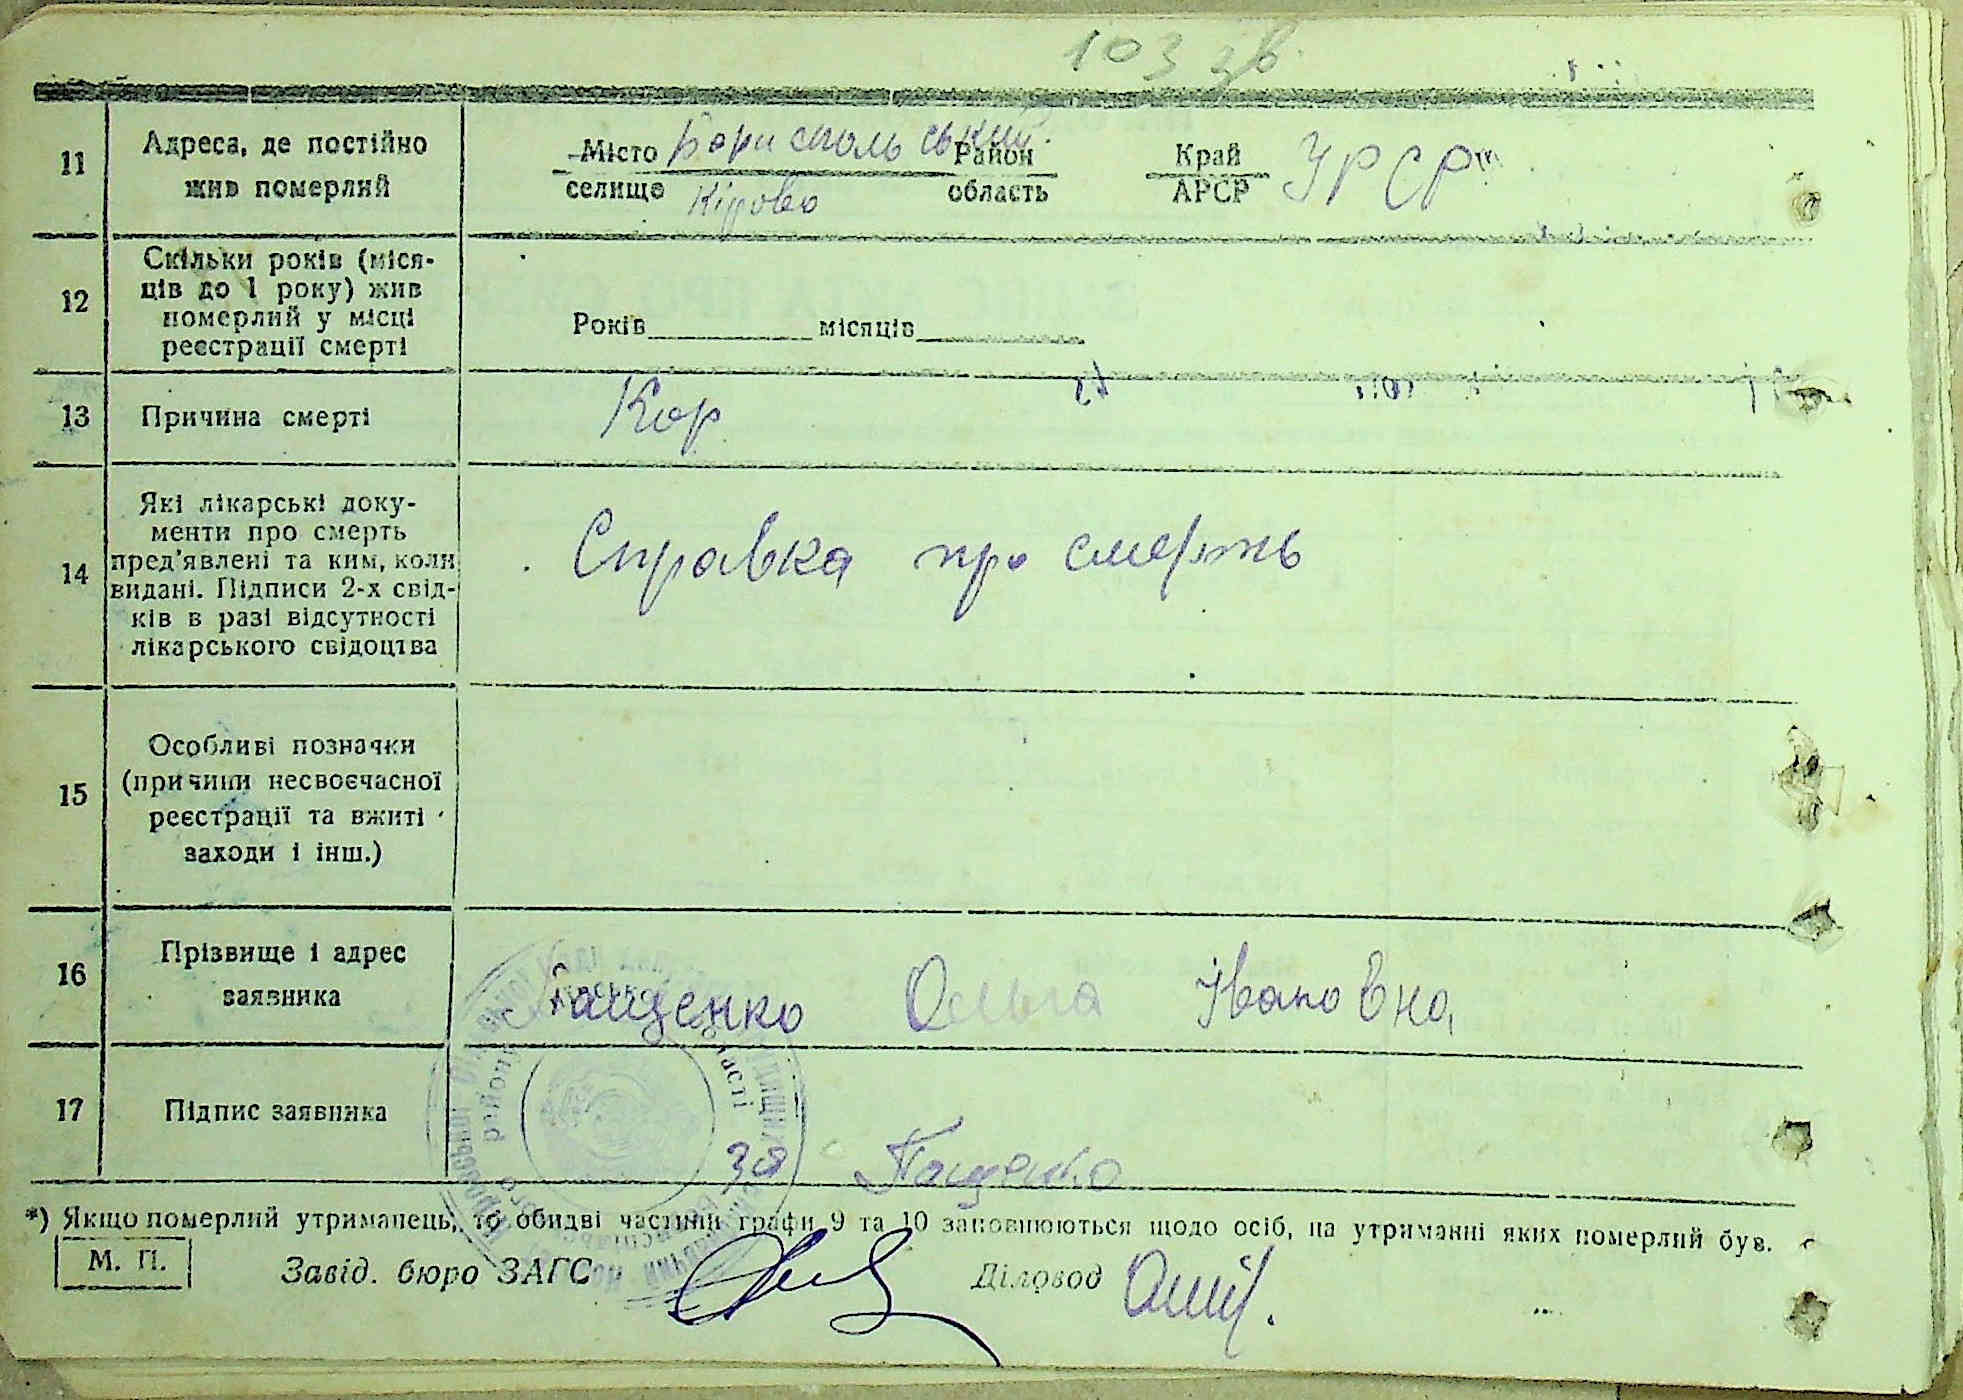 103 зв.
11
Адреса, де постійно
жив померлий
Місто Бориспольський Район Край УРСР
селище Кірово область АРСР
12
Скільки років (міся-
ців до 1 року) жив
померлий у місці
реєстрації смерті
Років місяців
13
Причина смерті
Кор
14
Які лікарські доку-
менти про смерть
пред'явлені та ким, коли
видані. Підписи 2-х свід-
ків в разі відсутності
лікарського свідоцтва
Справка про смерть
15
Особливі позначки
(причини несвоєчасної
реєстрації та вжиті
заходи і інш.)
16
Прізвище і адрес
заявника
Пащенко Ольга Івановна
17
Підпис заявника
за Пащенко
*) Якщо померлий утриманець, то обидві частини графи 9 та 10 заповнюються щодо осіб, на утриманні яких померлий був.
М. П.
Завід. бюро ЗАГС Діловод